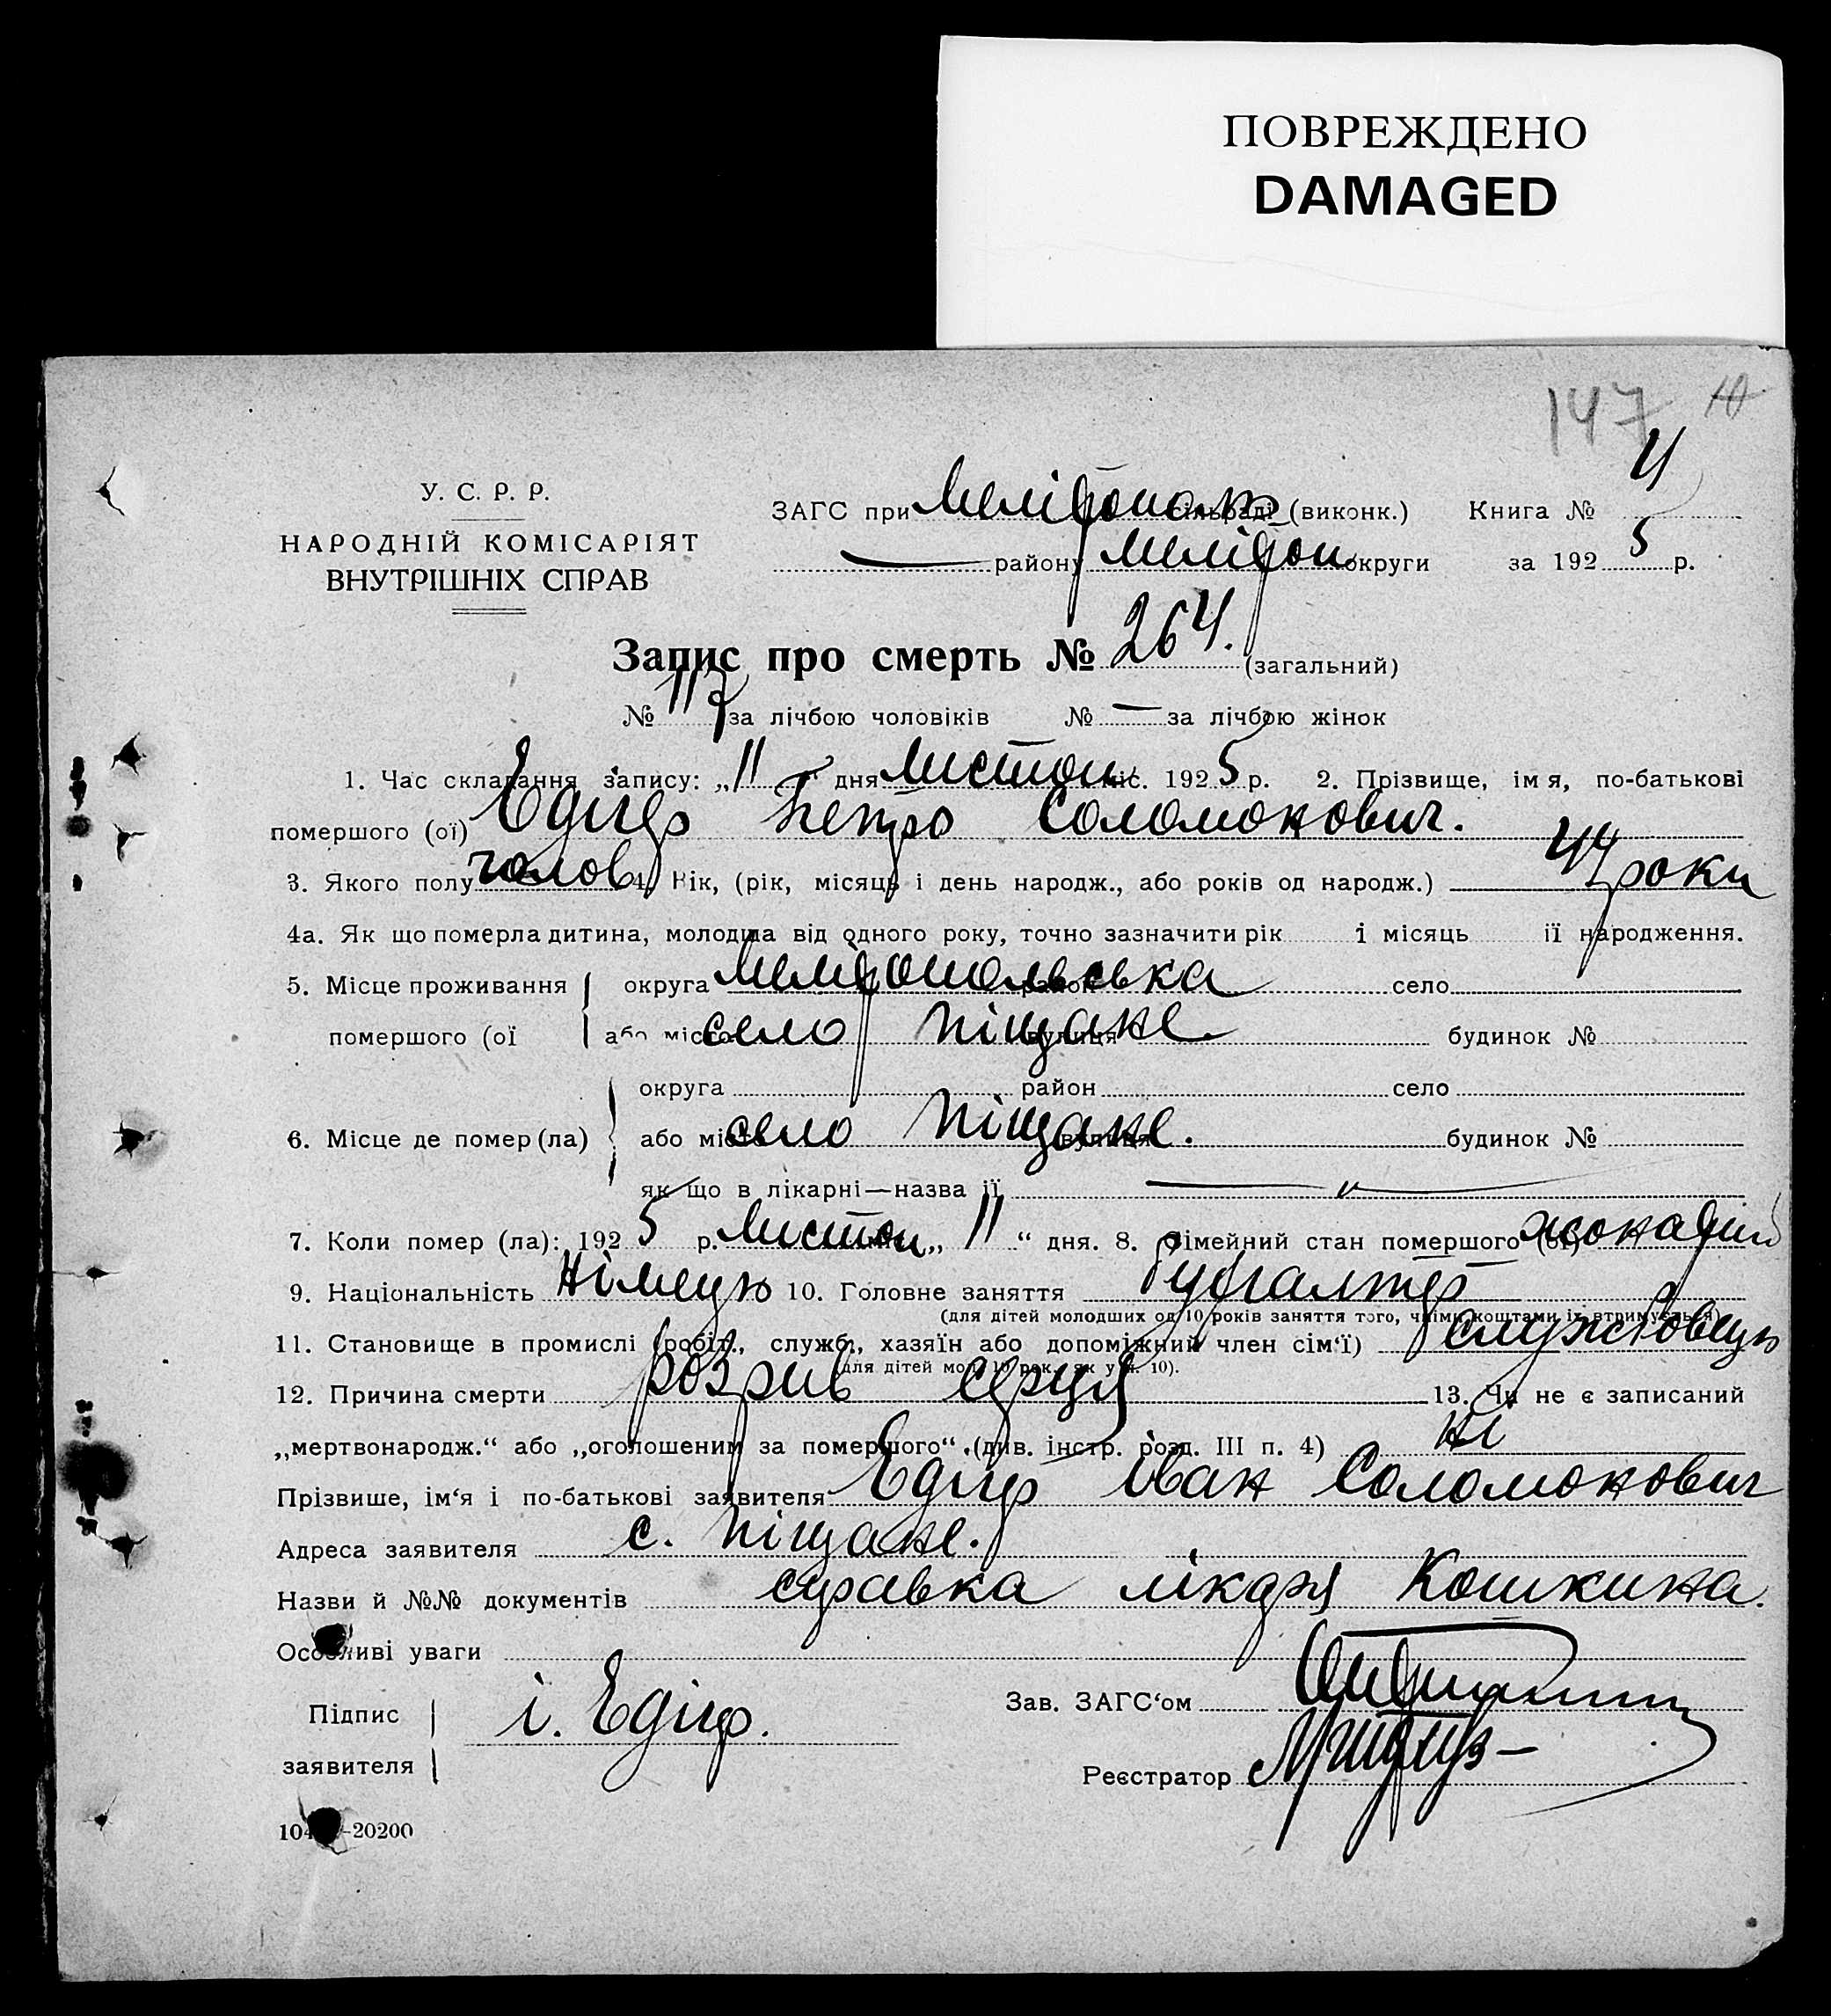 ПОВРЕЖДЕНО
DAMAGED
147
У. С. Р. Р.
НАРОДНІЙ КОМІСАРІЯТ
ВНУТРІШНІХ СПРАВ
ЗАГС при Мелітопольс сільраді (виконк.) Книга № 4
— району Мелітоп округи за 1925 р.
Запис про смерть № 264. (загальний)
№ 117 за лічбою чоловіків № — за лічбою жінок
1. Час складання запису: „11“ дня Листоп міс. 1925 р. 2. Прізвище, імя, по-батькові
помершого (ої) Едігер Петро Соломонович.
3. Якого полу голов 4. Вік, (рік, місяць і день народж., або років од народж.) 44 роки
4а. Як що померла дитина, молодша від одного року, точно зазначити рік і місяць її народження.
5. Місце проживання округа Мелітопольська район село
помершого (ої або місто село Піщане. вулиця будинок №
округа район село
6. Місце де помер (ла) або місто село Піщане. вулиця будинок №
як що в лікарні—назва її — „ —
7. Коли помер (ла): 1925 р. Листоп „11“ дня. 8. Сімейний стан помершого (ої) жонатий
9. Національність німець 10. Головне заняття бухгалтер
(для дітей молодших од 10 років заняття того, чиїми коштами їх втримується)
11. Становище в промислі (робіт., служб., хазяїн або допоміжний член сім‘ї) службовець
(для дітей мол. 10 рок. як у п. 10).
12. Причина смерти розрив серця 13. Чи не є записаний
„мертвонародж.“ або „оголошеним за помершого“ (див. інстр. розд. III п. 4) ні
Прізвише, ім‘я і по-батькові заявителя Едігер Іван Соломонович
Адреса заявителя с. Піщане.
Назви й №№ документів справка лікаря Кошкина.
Особливі уваги
Підпис
заявителя
і. Едігер.
Зав. ЗАГС‘ом
Реєстратор
-20200